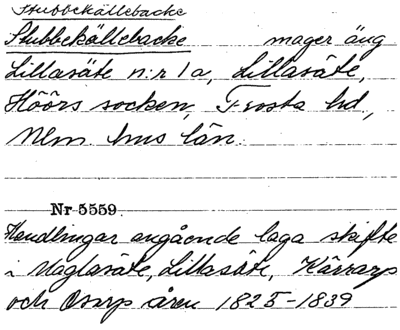 Stubbekällebacke
Stubbekällebacke mager äng
Lillasäte n:r 1a, Lillasäte,
Höörs socken, Frosta hd,
Mlm hus län.
Nr 5559
Handlingar angående laga skifte
i Maglasäte, Lillasäte, Kärrarp
och Osarp åren 1825-1839